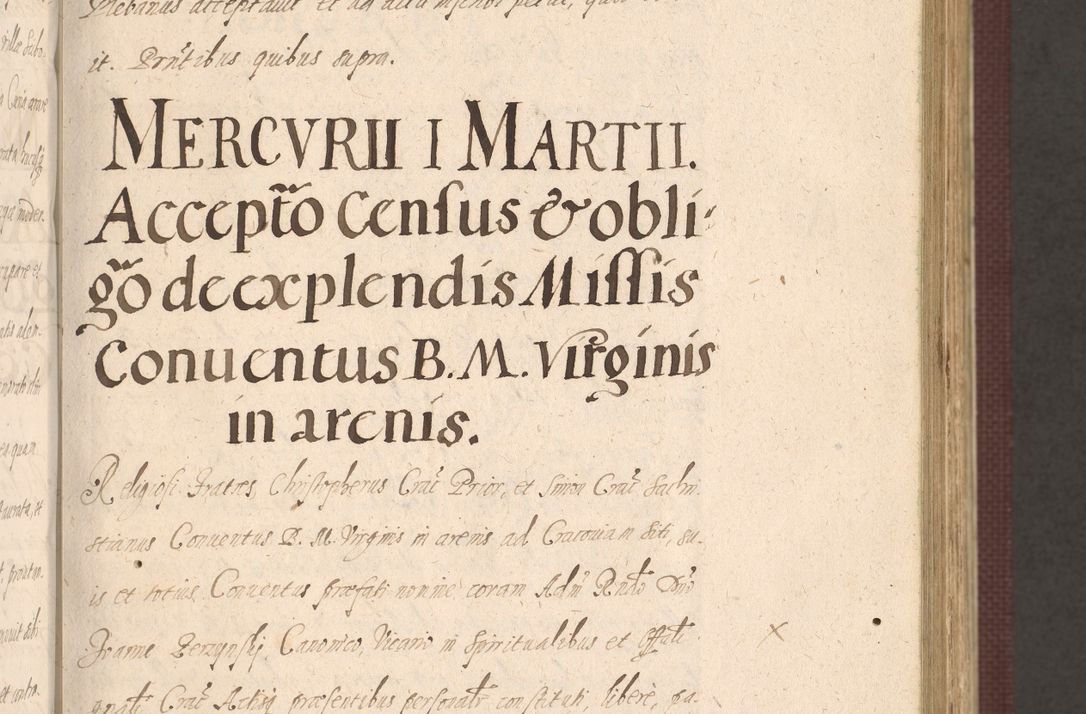 Plebanus acceptavit et ad acta
it. Prñtibus quibus supra.
MERCVRII I MARTII.
Accept̃o Censſus & obli-
g̃o de explendis Miſſis
Conuentus B. M. Virginis
in arenis.
Religiosi Fratres, Christopherus Crac̃ Prior, et Simon Crac̃ Sachri
stianus Conuentus B. M. Virginis in arenis ad Cracouiam siti, su-
is et totius Conuentus præfati nomine coram Adm̃ Rndo Dño
Joanne Canonico, Vicario in Spiritualibus et Offali
gnali Crac̃ Actisq præsentibus personalr constituti, libere, pa-